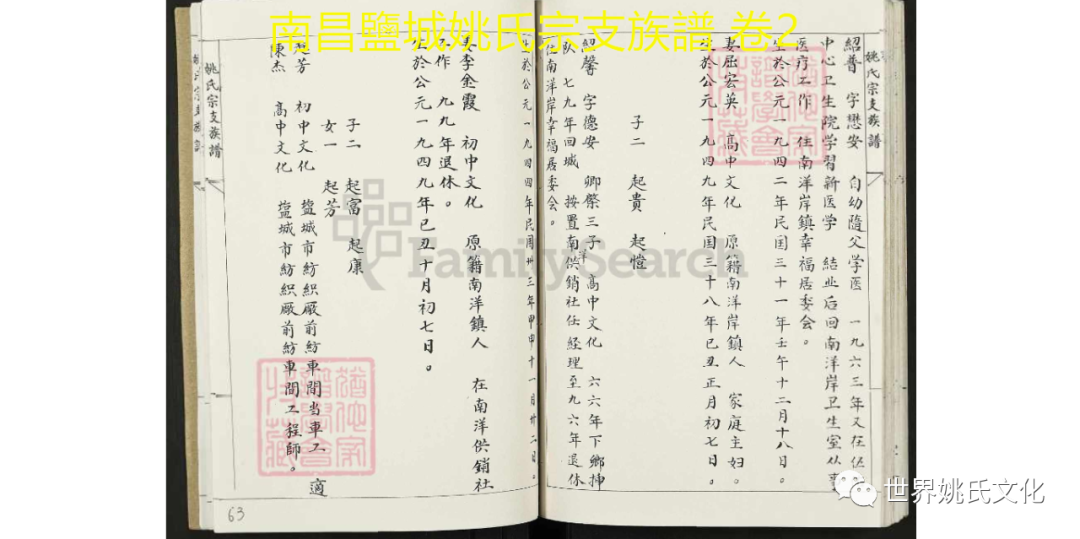 南昌鹽城姚氏宗支族譜 卷2
姚氏宗支族譜
紹普 字懋安 自幼隨父学医 一九六三年又在伍
中心卫生院学習新医学 結业后回南洋岸卫生室从事
医疗工作 住南洋岸鎮幸福居委会。
生於公元一九四二年民国三十一年壬午十二月十八日。
妻屈宏英 高中文化 原籍南洋岸鎮人 家庭主妇。
生於公元一九四九年民国三十八年己丑正月初七日。
子二 起貴 起愷
紹馨 字德安 卿檠三子 高中文化 六六年下鄉挿
队 七九年回城 按置南洋供銷社任経理至九六年退休
住南洋岸幸福居委会。
生於公元一九四四年民国卅三年甲申十一月廿二日。
妻李金霞 初中文化 原籍南洋鎮人 在南洋供銷社
工作 九九年退休。
生於公元一九四九年己丑十月初七日。
子二 起富 起康
女一 起芳
起芳 初中文化 盐城市紡織厰前紡車間当車工 適
陳杰 高中文化 盐城市紡織厰前紡車間工程師。
姚氏宗支族譜
63
FamilySearch
世界姚氏文化